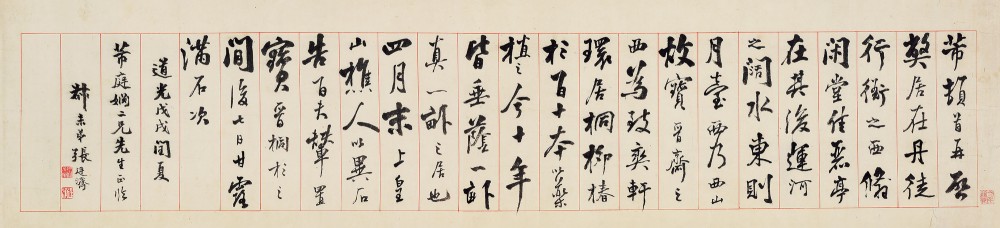 芾頓首再啓
弊居在丹徒
行衙之西翛
閑堂佳麗亭
在其後運河
之闊水東則
月臺西乃西山
故寶晉齋之
西為致爽軒
環居桐柳椿
杉百十本以藥
植之今十年
皆垂蔭一畝
真一畝之居也
四月末上皇
山樵人以異石
告百夫輦置
寶晉桐杉之
間後七日甘露
滿石次
道光戊戌閏夏
芾庭姻二兄先生正臨
叔未弟張廷濟